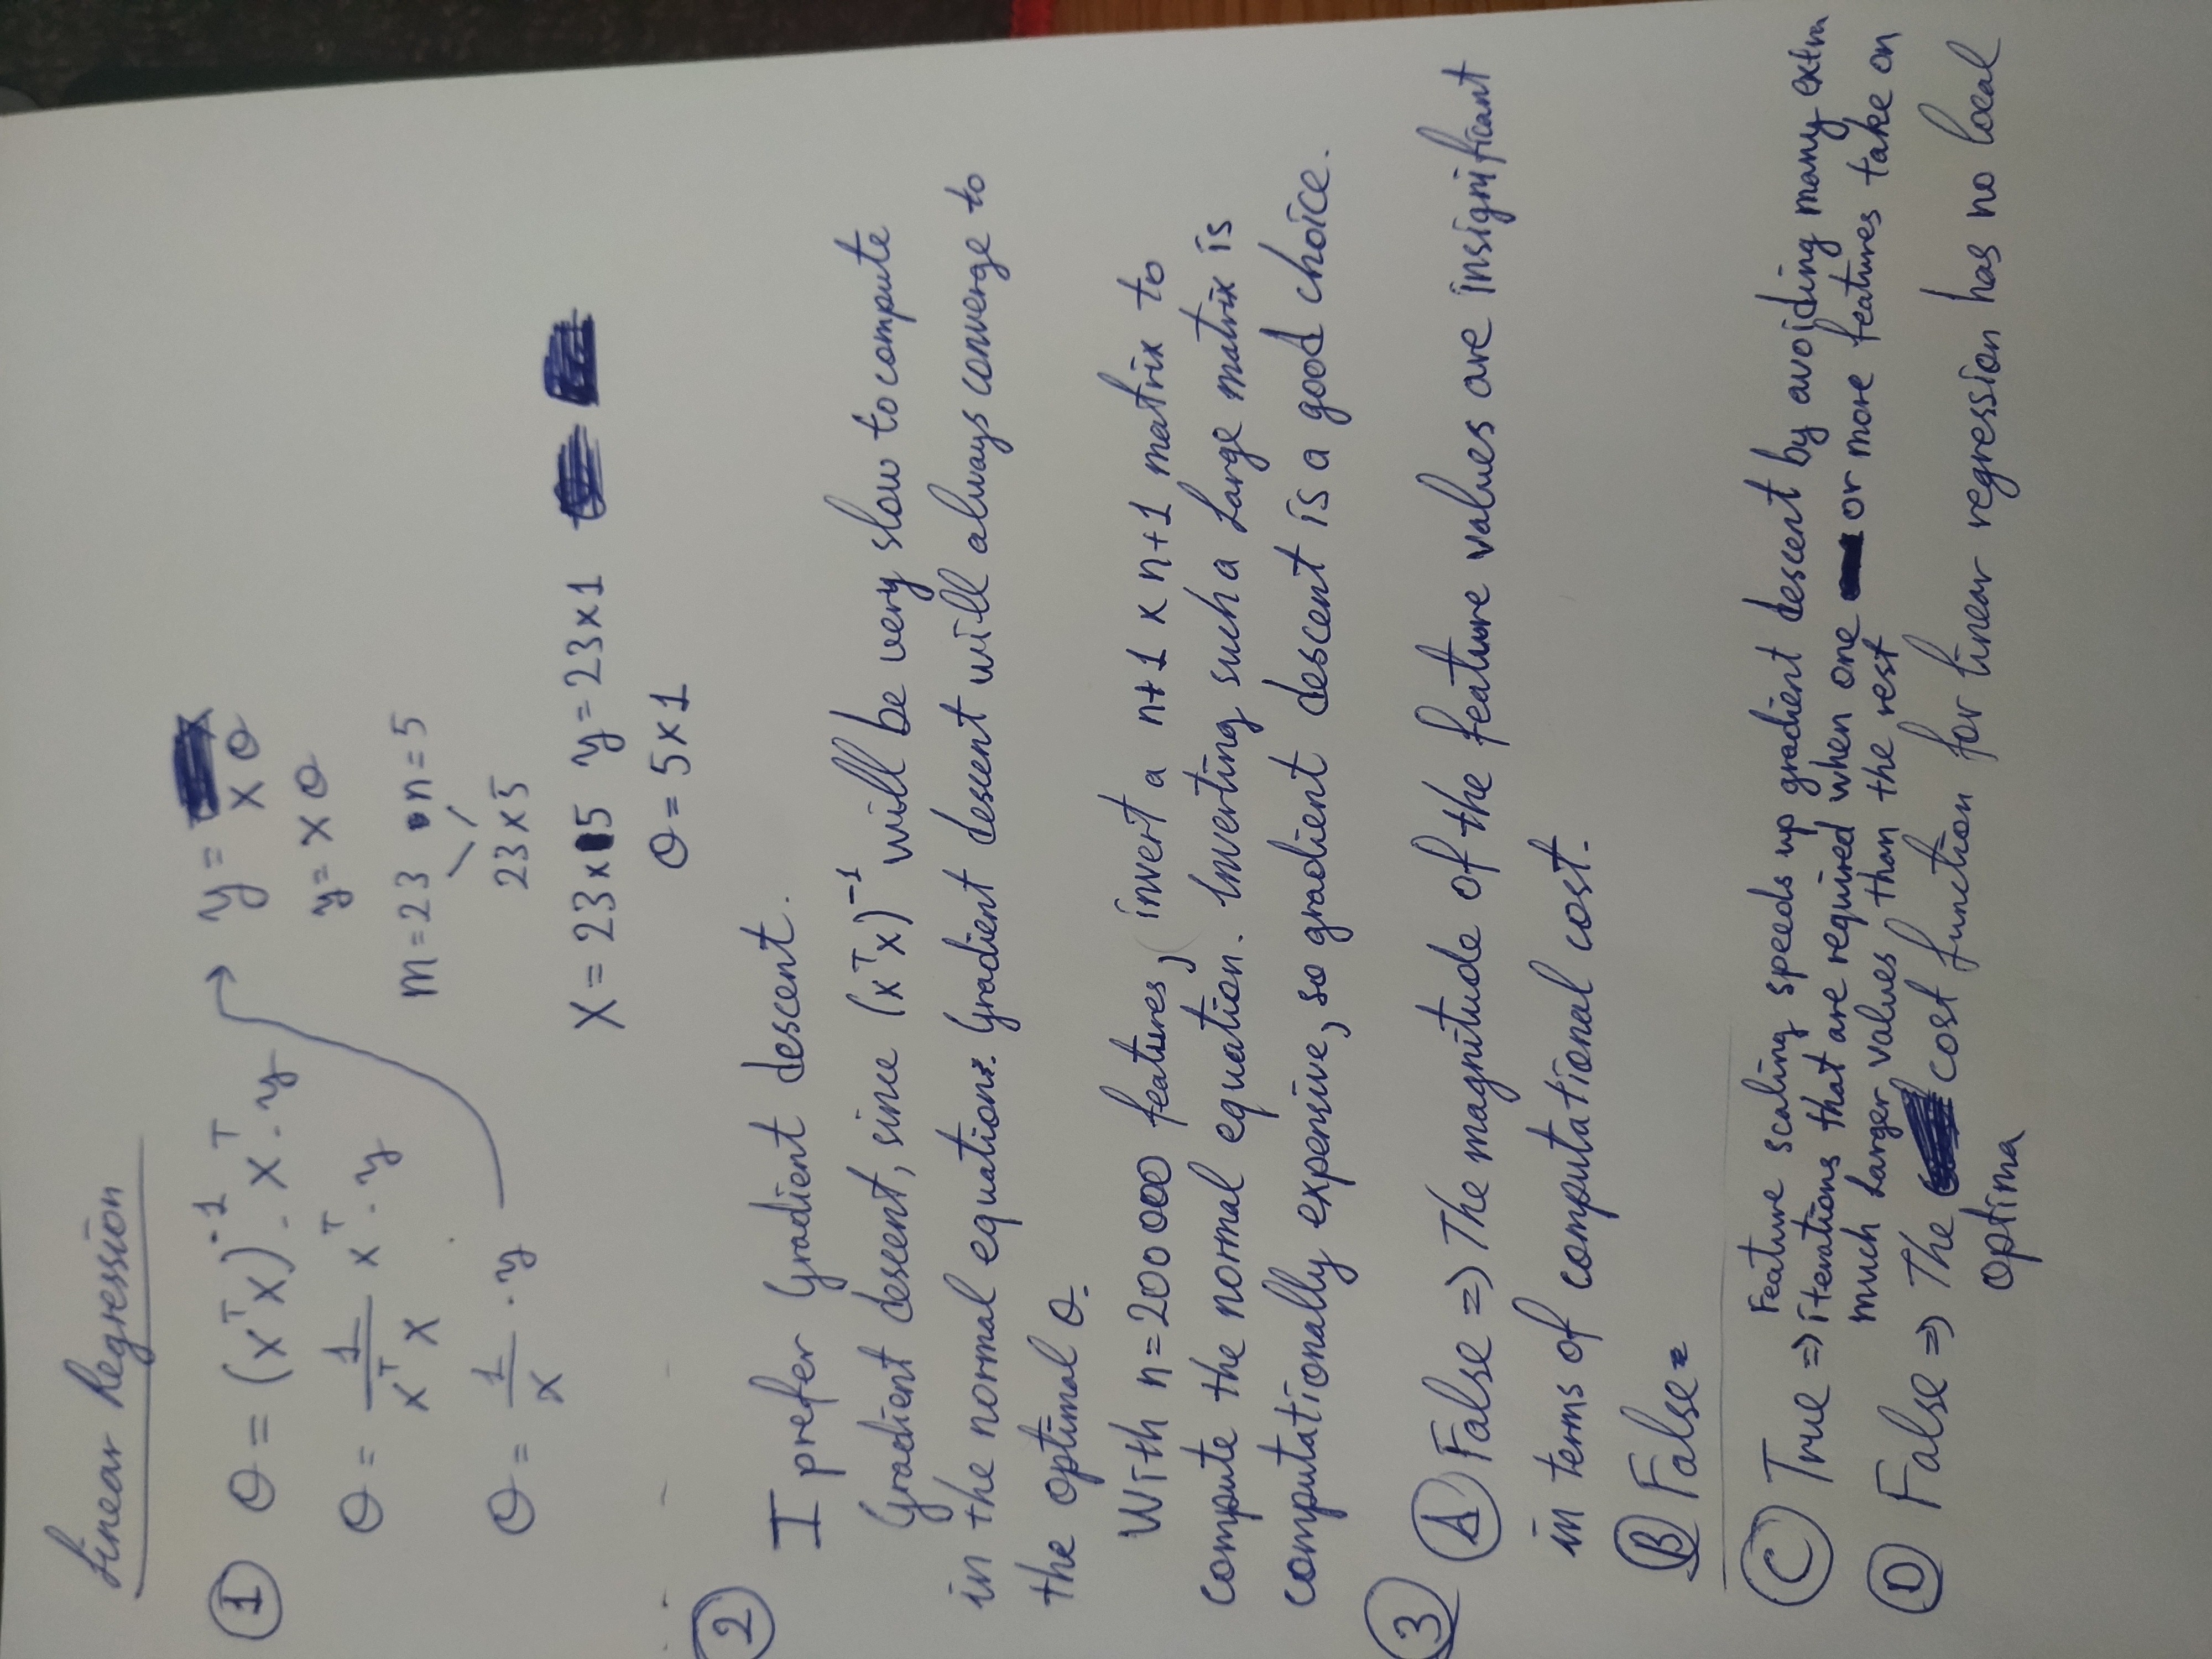 Linear Regression
① θ = (XᵀX)⁻¹ · Xᵀ · y
θ = 1/(XᵀX) Xᵀ · y
θ = 1/X · y
→ y =
X θ
y = X θ
m = 23 n = 5
23 x 5
X = 23 x 5 y = 23 x 1
θ = 5 x 1
②
I prefer Gradient descent.
Gradient descent, since (XᵀX)⁻¹ will be very slow to compute
in the normal equation. Gradient descent will always converge to
the optimal θ.
With n = 200 000 features, invert a n+1 x n+1 matrix to
compute the normal equation. Inverting such a large matrix is
computationally expensive, so gradient descent is a good choice.
③
Ⓐ False => The magnitude of the feature values are insignificant
in terms of computational cost.
Ⓑ False
Ⓒ True => Feature scaling speeds up gradient descent by avoiding many extra
iterations that are required when one or more features take on
much larger values than the rest
Ⓓ False => The cost function for linear regression has no local
optima